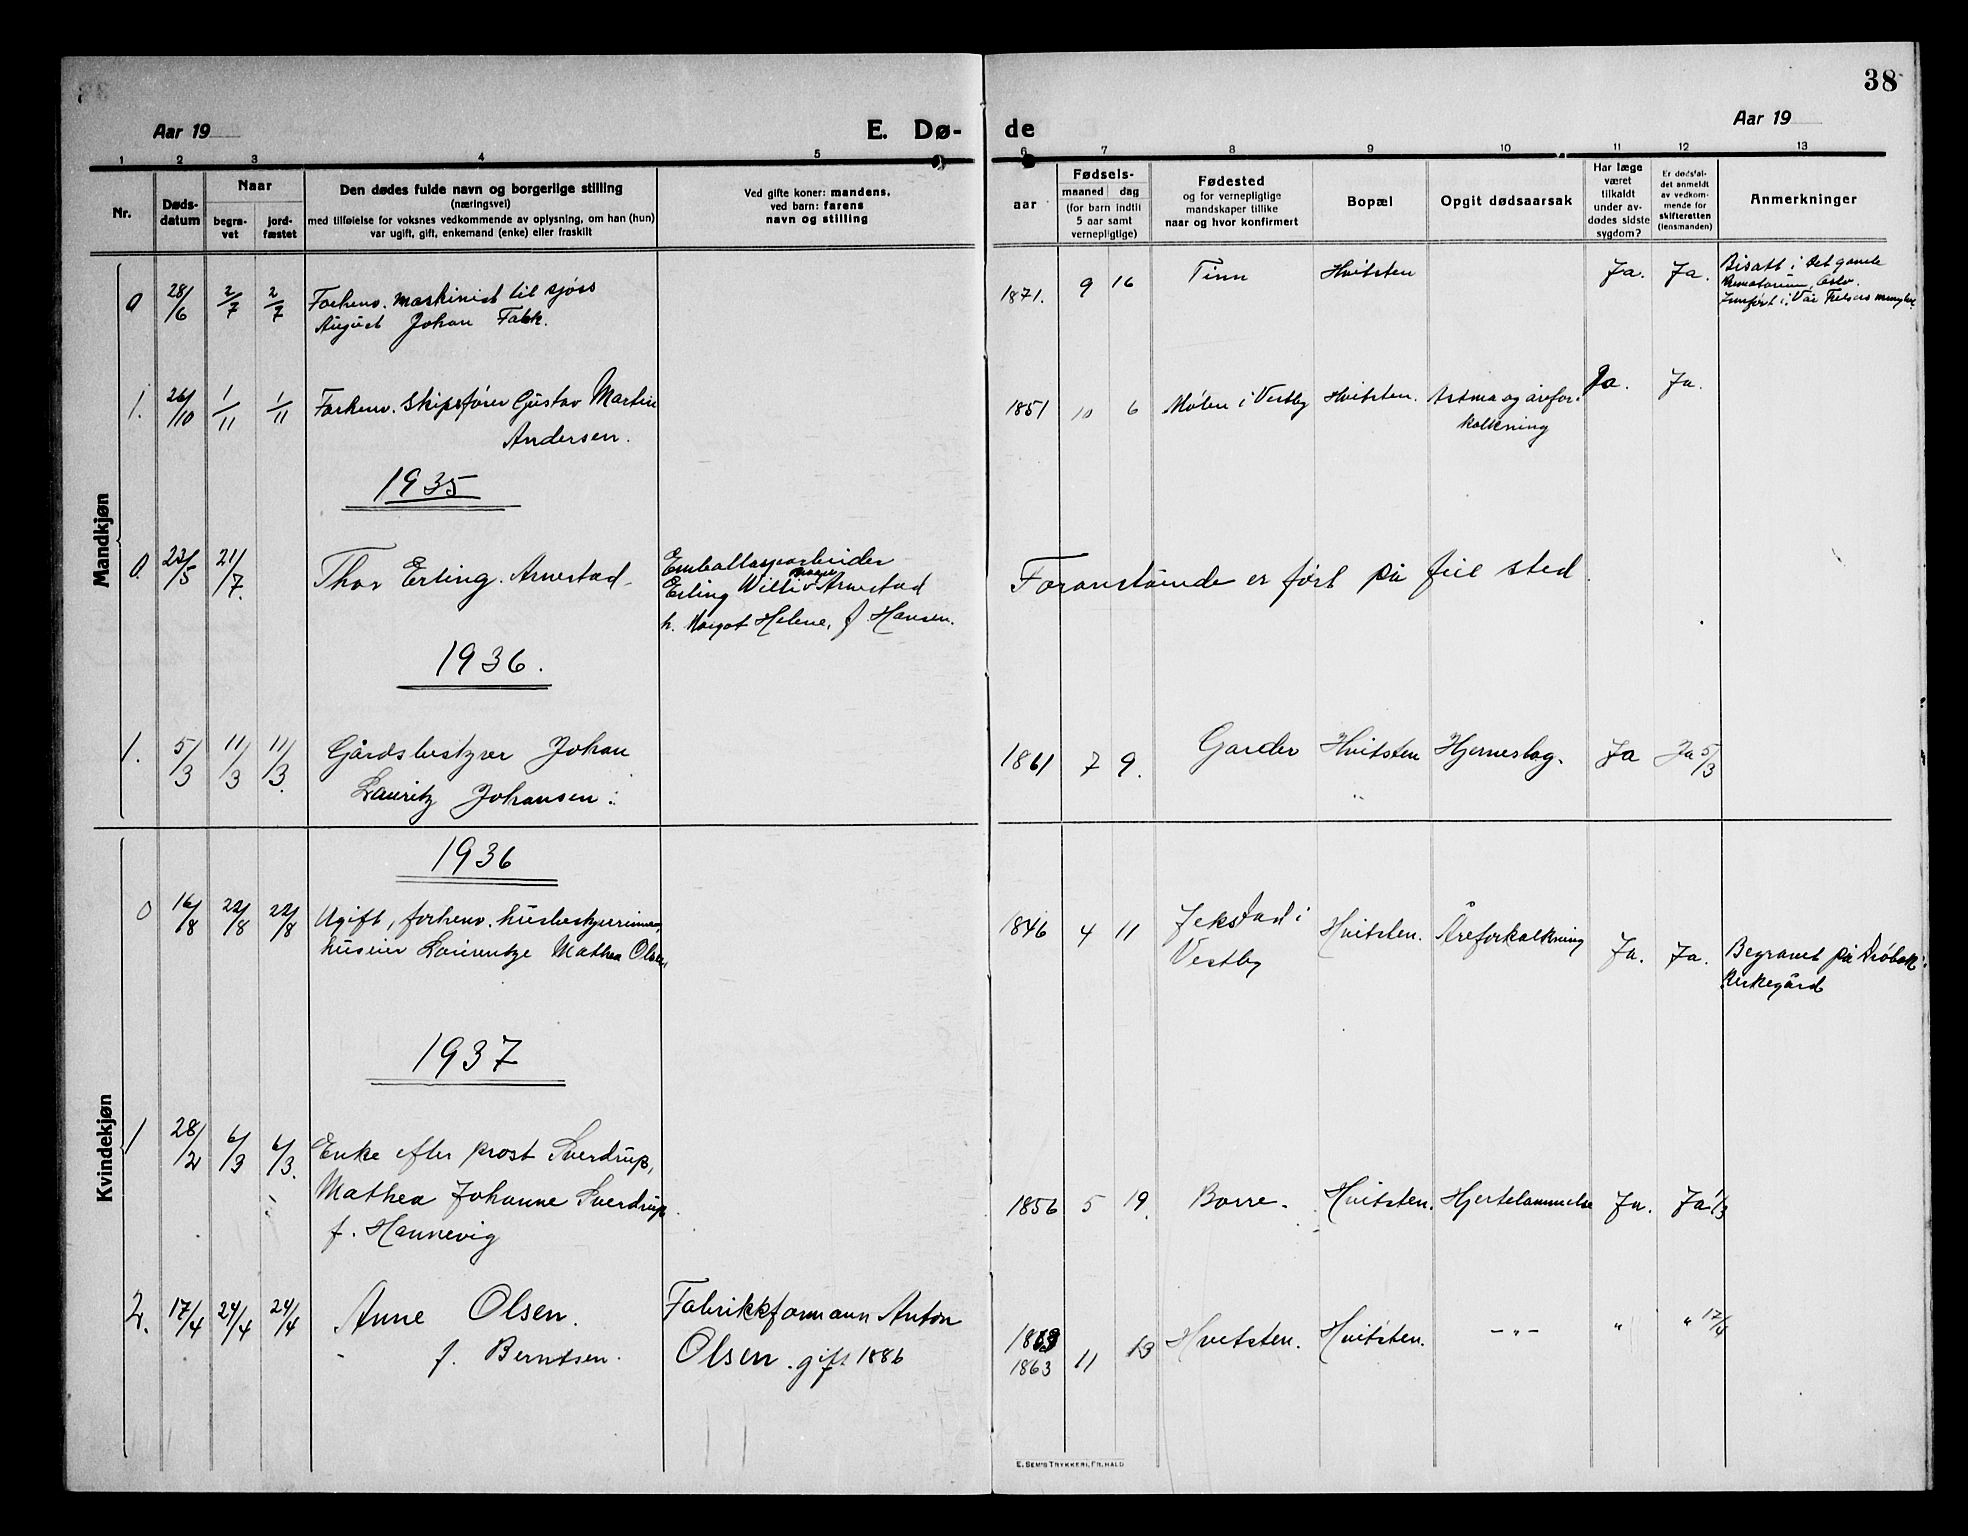 38
Aar 19
E. Dø- de
Aar 19
1 2 3 4 5 6 7 8 9 10 11 12 13
Nr.
Døds-
datum
Naar
begra-
vet
jord-
fæstet
Den dødes fulde navn og borgerlige stilling
(næringsvei)
med tilføielse for voksnes vedkommende av oplysning, om han (hun)
var ugift, gift, enkemand (enke) eller fraskilt
Ved gifte koner: mandens,
ved barn: farens
navn og stilling
aar
Fødsels-
maaned dag
(for barn indtil
5 aar samt
vernepligtige)
Fødested
og for vernepligtige
mandskaper tillike
naar og hvor konfirmert
Bopæl
Opgit dødsaarsak
Har læge
været
tilkaldt
under av-
dødes sidste
sygdom?
Er dødsfal-
det anmeldt
av vedkom-
mende for
skifteretten
(lensmanden)
Anmerkninger
Mandkjøn
0 28/6 2/7 2/7 Forhenv. maskinist til sjøss
August Johan Falck.
1871. 9 16 Tinn Hvitsten Ja. Ja.
Bisatt i Det gamle
Krematorium, Oslo.
Innført i Vår Frelsers menighet.
1. 26/10 1/11 1/11 Forhenv. skipsfører Gustav Martin
Andersen.
1851 10 6 Mølen i Vestby Hvitsten. Astma og årefor-
kalkning
Ja. Ja.
1935
0. 22/5 21/7. Thor Erling Arnestad
Emballasjearbeider
Erling Willi Arnestad
h. Margot Helene, f Hansen.
Foranstående er ført på feil sted
1936.
1. 5/3 11/3 11/3. Gårdsbestyrer Johan
Lauritz Johansen.
1861 7 9. Garder Hvitsten Hjerneslag. Ja Ja 5/3
Kvindekjøn
1936
0 16/8 22/8 22/8 Ugift, forhenv. husbestyrerinne,
huseier Laurentze Mathea Olsen
1846 4 11 Jekstad i
Vestby
Hvitsten. Åreforkalkning Ja. Ja.
Begravet på Drøbak
kirkegård
1937
1 28/2 6/3 6/3. Enke efter prost Sverdrup,
Mathea Johanne Sverdrup.
f. Hannevig
1856 5 19. Borre. Hvitsten. Hjertelammelse Ja. Ja 1/3
2. 17/4 24/4 24/4 Anne Olsen.
f. Berntsen.
Fabrikkformann Anton
Olsen. gift 1886
1863 11 13 Hvitsten. Hvitsten. -"- " " 17/4
E. SEM'S TRYKKERI, FR.HALD